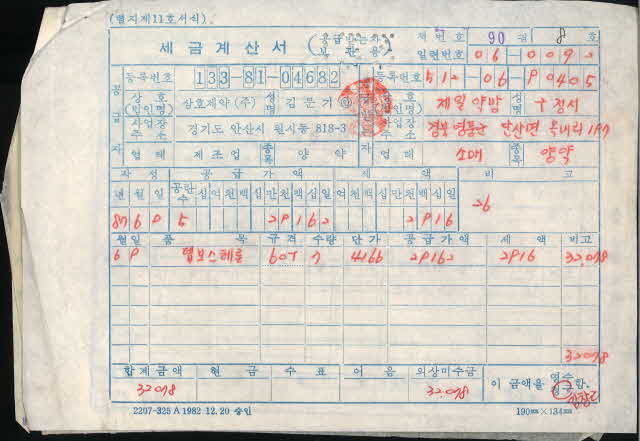 (별지제11호서식)
세금계산서 (공급받는자 보관용)
책번호 90 권 8 호
일련번호 06-009
등록번호 133-81-04682 등록번호 512-06-90405
공급자 상호(법인명) 삼호제약(주) 성명 김문기 ㊞ 상호(법인명) 제일약방 성명 구정서
사업장주소 경기도 안산시 원시동 818-3 사업장주소 경북 영풍군 단산면 옥대리 197
업태 제조업 종목 양약 업태 소매 종목 양약
작성 공급가액 세액 비고
년 월 일 공란수 십억천백십만천백십일 십억천백십만천백십일
87 6 9 5 29162 2916 26
월일 품목 규격 수량 단가 공급가액 세액 비고
6 9 60T 7 4166 29162 2916 32,078
32,078
합계금액 현금 수표 어음 외상미수금 이 금액을 영수 청구 함.
32,078 32,078
2207-325A 1982.12.20 승인 190mm×134mm